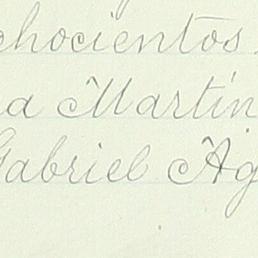 chocientos
a Martin
Gabriel Ag